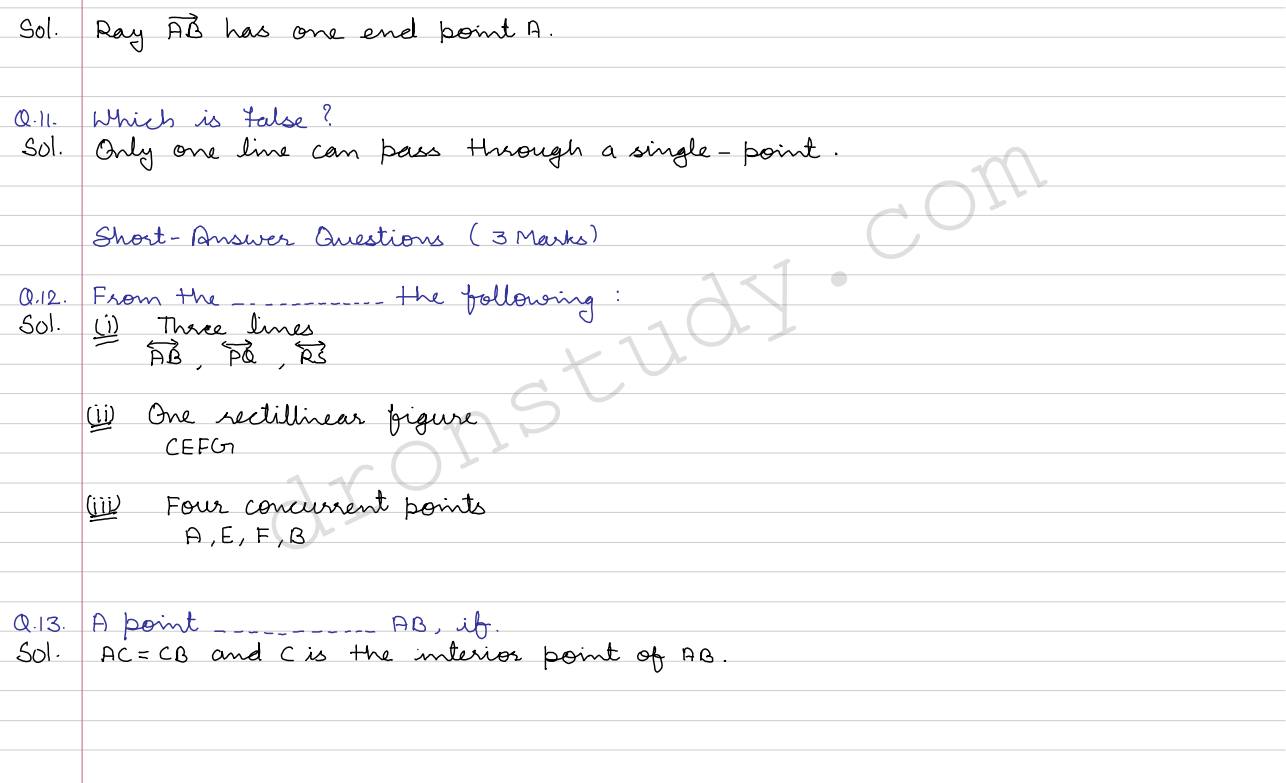 Sol. Ray AB has one end point A.
Q.11. Which is false ?
Sol. Only one line can pass through a single-point.
Short-Answer Questions (3 Marks)
Q.12. From the ------------ the following :
Sol. (i) Three lines
AB, PQ, RS
(ii) One rectillinear figure
CEFG
(iii) Four concurrent points
A, E, F, B
Q.13. A point ------------ AB, if.
Sol. AC = CB and C is the interior point of AB.
dronstudy.com